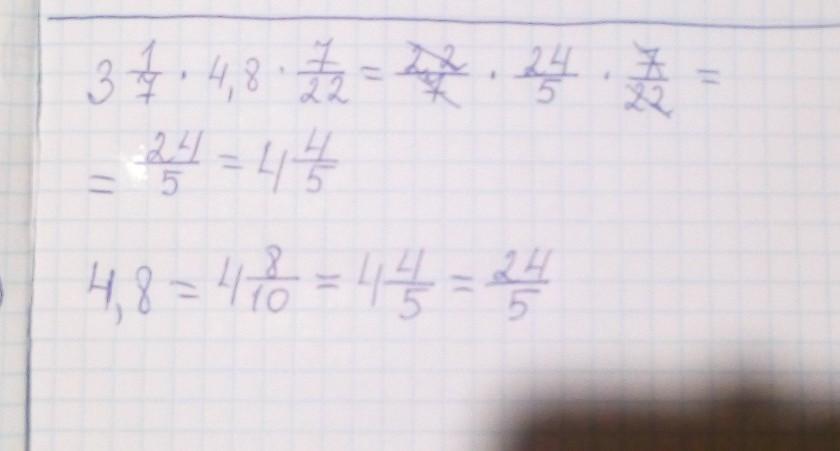 3 1/7 · 4,8 · 7/22 = 22/7 · 24/5 · 7/22 =
= 24/5 = 4 4/5
4,8 = 4 8/10 = 4 4/5 = 24/5